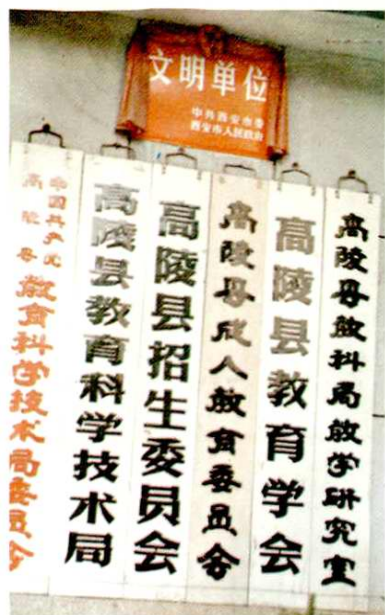 文明单位
中共西安市委
西安市人民政府
中国共产党
高陵县
教育科学技术局委员会
高陵县教育科学技术局
高陵县招生委员会
高陵县成人教育委员会
高陵县教育学会
高陵县教科局教学研究室